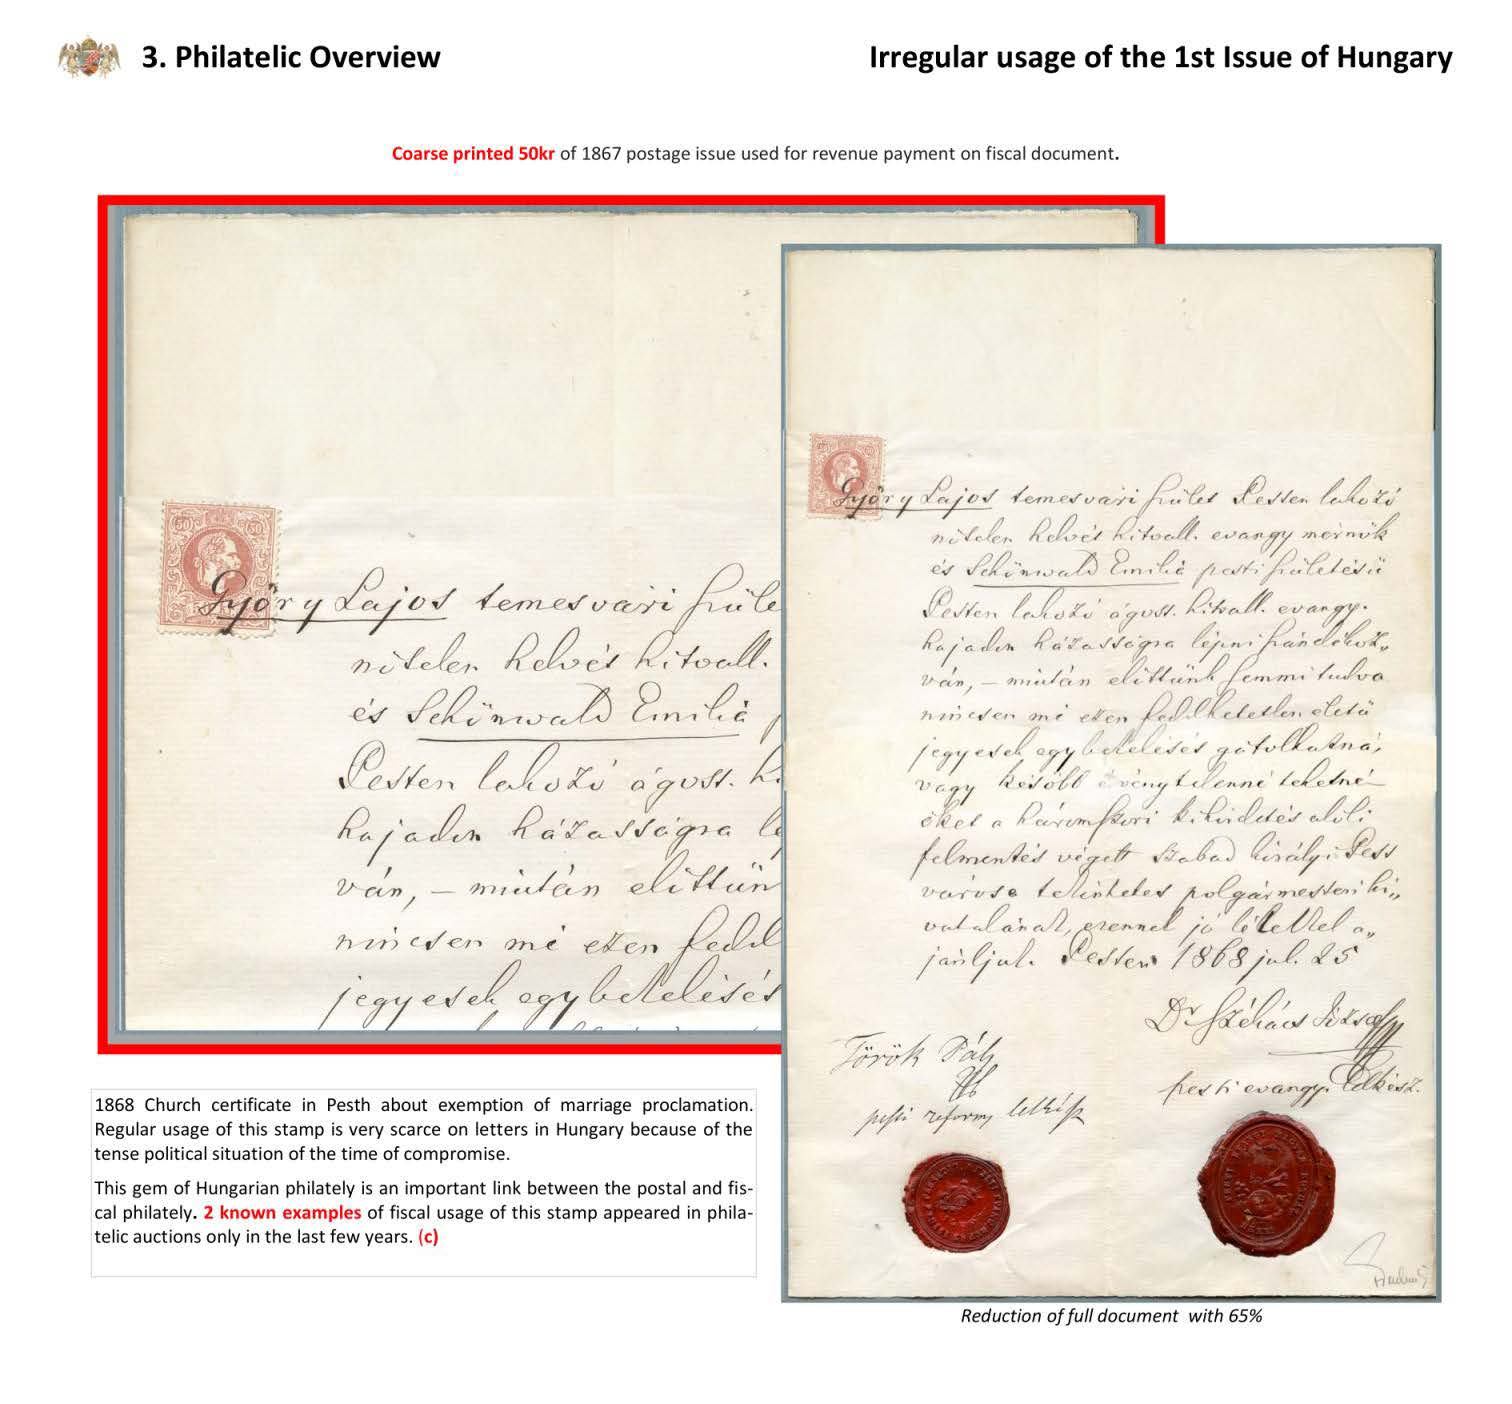 3. Philatelic Overview
Irregular usage of the 1st Issue of Hungary
Coarse printed 50kr of 1867 postage issue used for revenue payment on fiscal document.
50 50
Győry Lajos temesvári szüle
nőtelen helvét hitvall.
és Schönwald Emilia
Pesten lakozó ágost. hi
hajadon házasságra lé
ván, – miután előttün
nincsen mi ezen fedd
jegyesek egybekelését
Győry Lajos temesvári szület Pesten lakozó
nőtelen helvét hitvall. evangy mérnök
és Schönwald Emilia pesti születésü
Pesten lakozó ágost. hitvall. evangy.
hajadon házasságra lépni szándékoz„
ván, – miután előttünk semmi tudva
nincsen mi ezen feddhetetlen életü
jegyesek egybekelését gátolhatná,
vagy később érvénytelenné tehetné
őket a háromszori kihirdetés alóli
felmentés végett szabad királyi Pest
városa tekintetes polgármesteri hi„
vatalának, ezennel jó lélekkel a„
jánljuk. Pesten 1868 jul. 25
Dr Székács József
pesti evangy. lelkész.
Török Pál
pesti reform, lelkész
1868 Church certificate in Pesth about exemption of marriage proclamation.
Regular usage of this stamp is very scarce on letters in Hungary because of the
tense political situation of the time of compromise.
This gem of Hungarian philately is an important link between the postal and fis-
cal philately. 2 known examples of fiscal usage of this stamp appeared in phila-
telic auctions only in the last few years. (c)
Reduction of full document with 65%